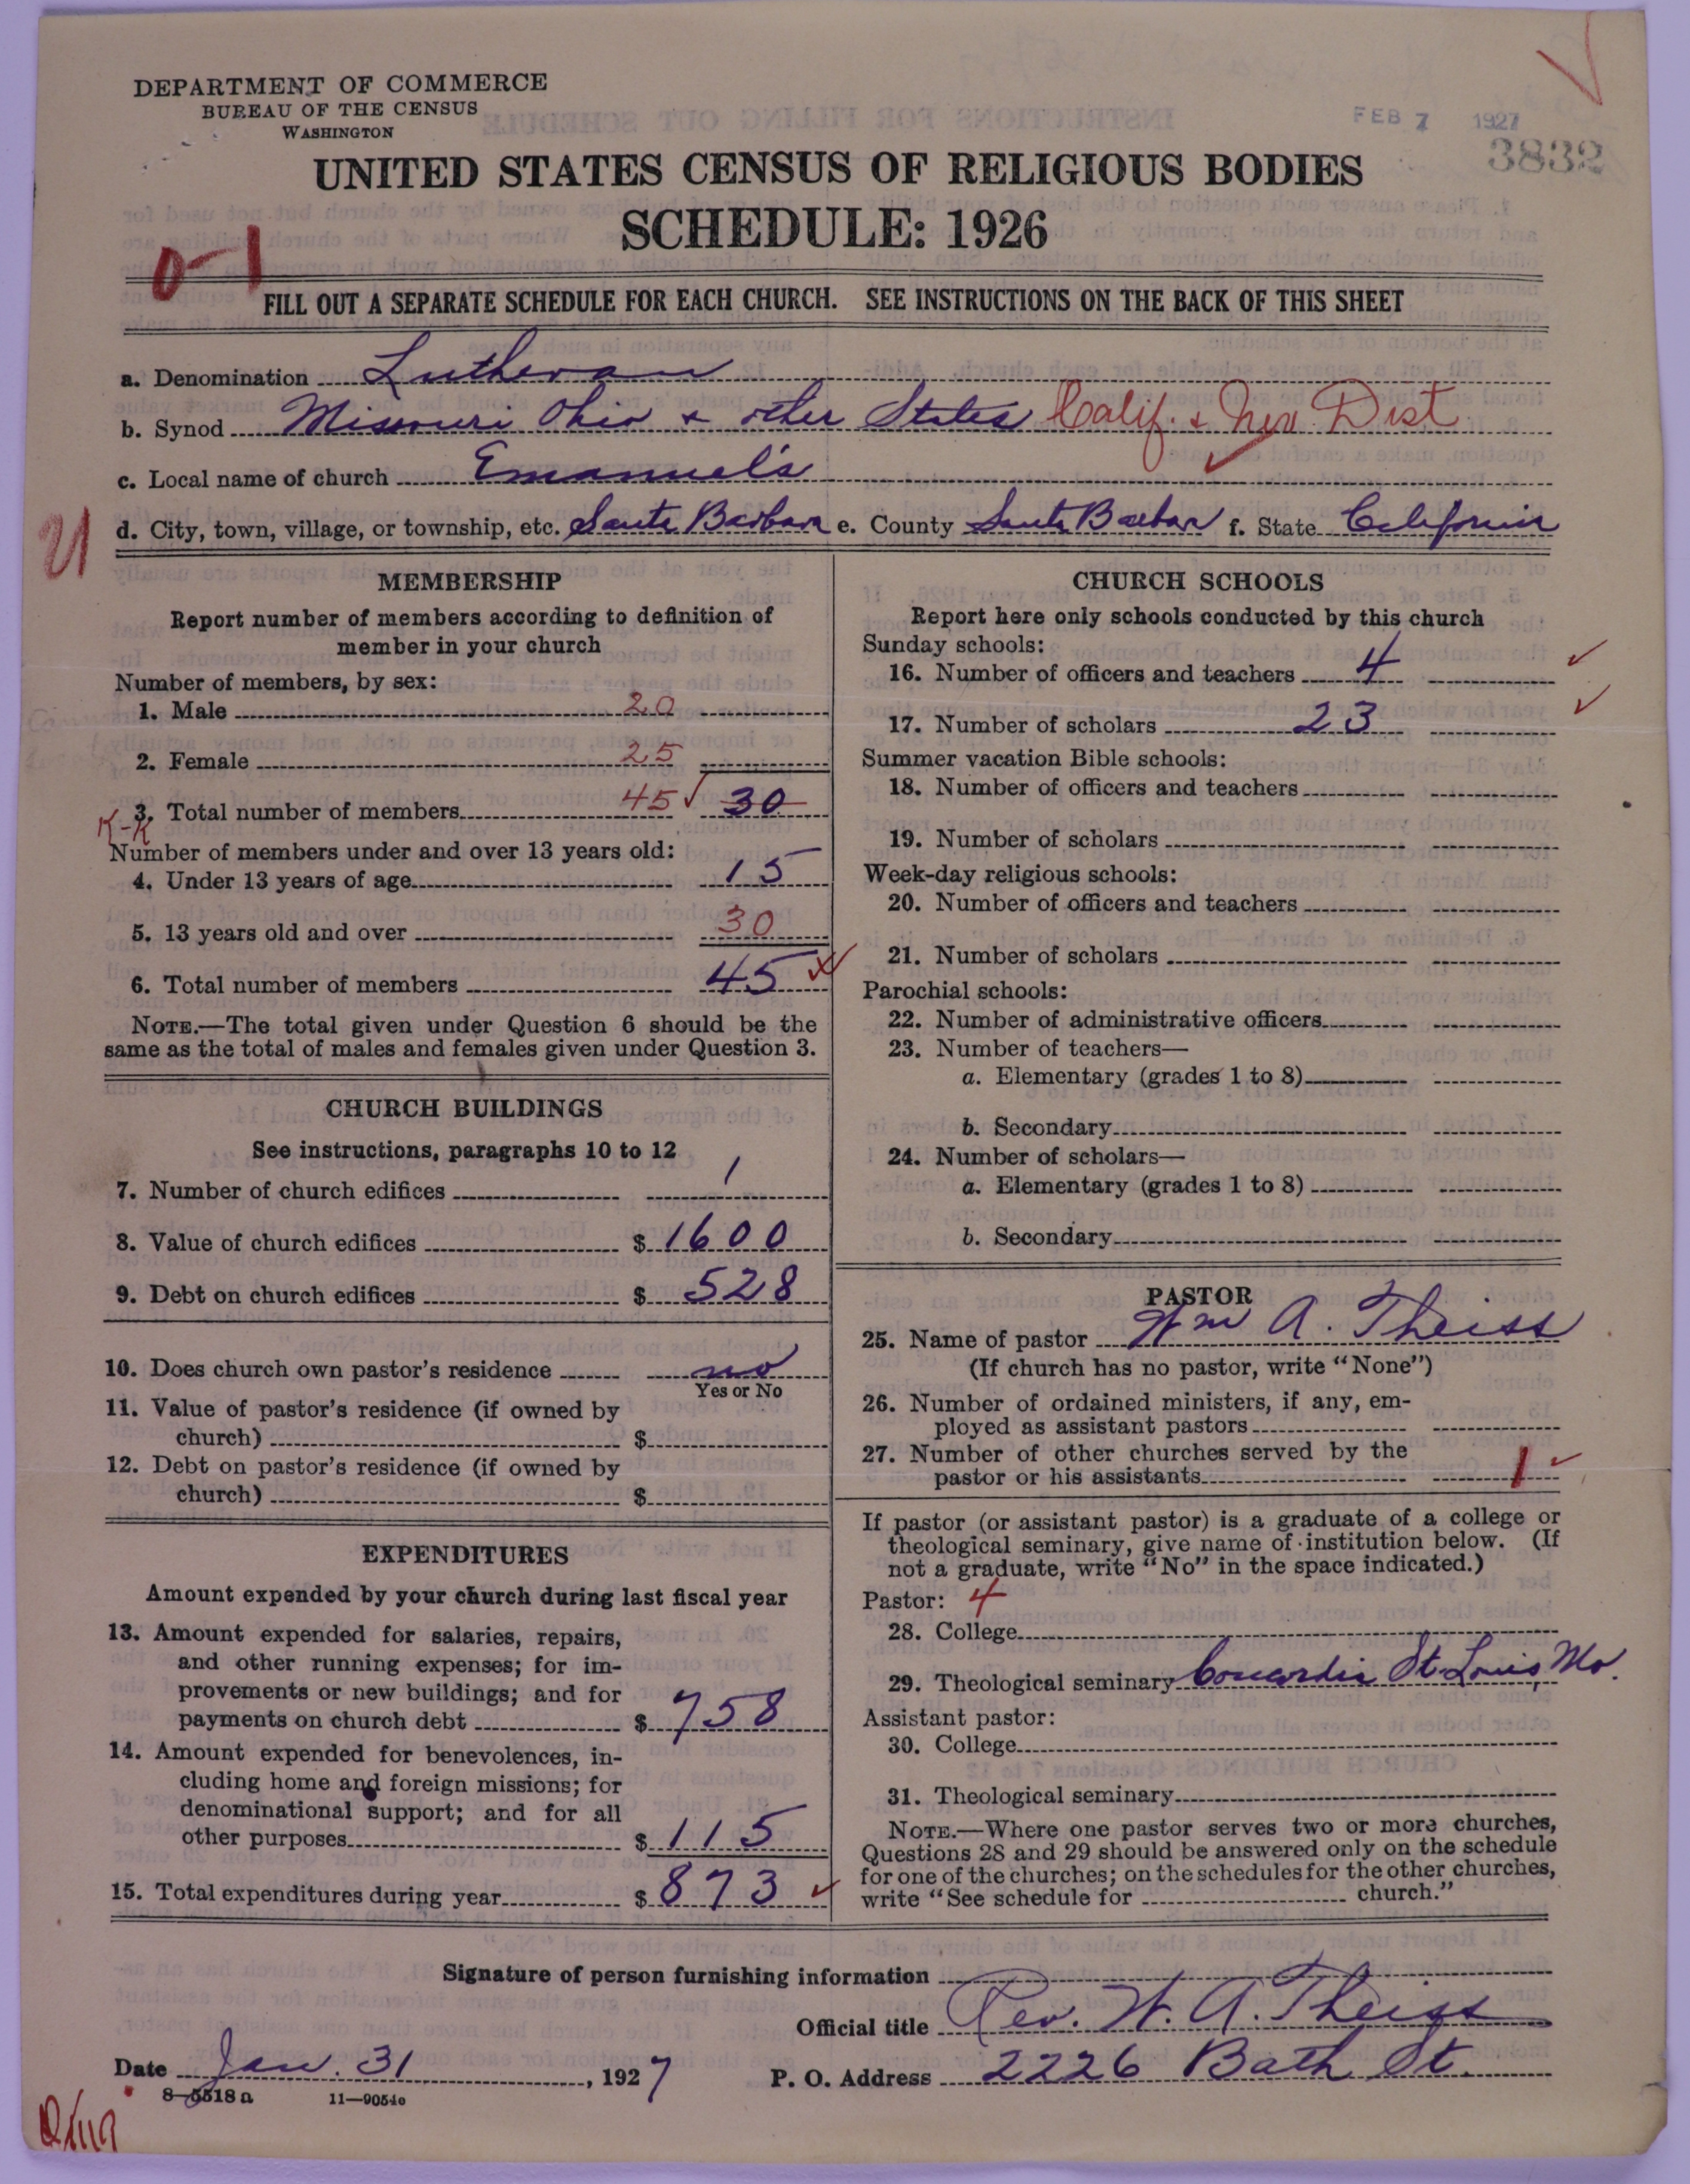 DEPARTMENT OF COMMERCE
BUREAU OF THE CENSUS
WASHINGTON
FEB 7 1927
3832
UNITED STATES CENSUS OF RELIGIOUS BODIES
SCHEDULE: 1926
0-1
FILL OUT A SEPARATE SCHEDULE FOR EACH CHURCH. SEE INSTRUCTIONS ON THE BACK OF THIS SHEET
a. Denomination Lutheran
b. Synod Missouri Ohio & other States Calif. & Nev. Dist
c. Local name of church Emanuel's
d. City, town, village, or township, etc. Santa Barbara e. County Santa Barbar f. State California
MEMBERSHIP
Report number of members according to definition of
member in your church
Number of members, by sex:
1. Male 20
2. Female 25
3. Total number of members 45 30
K-K
Number of members under and over 13 years old:
4. Under 13 years of age 15
5. 13 years old and over 30
6. Total number of members 45
NOTE.—The total given under Question 6 should be the
same as the total of males and females given under Question 3.
CHURCH BUILDINGS
See instructions, paragraphs 10 to 12
7. Number of church edifices 1
8. Value of church edifices $ 1600
9. Debt on church edifices $ 528
10. Does church own pastor's residence no
Yes or No
11. Value of pastor's residence (if owned by
church) $
12. Debt on pastor's residence (if owned by
church) $
EXPENDITURES
Amount expended by your church during last fiscal year
13. Amount expended for salaries, repairs,
and other running expenses; for im-
provements or new buildings; and for
payments on church debt $ 758
14. Amount expended for benevolences, in-
cluding home and foreign missions; for
denominational support; and for all
other purposes $ 115
15. Total expenditures during year $ 873
CHURCH SCHOOLS
Report here only schools conducted by this church
Sunday schools:
16. Number of officers and teachers 4
17. Number of scholars 23
Summer vacation Bible schools:
18. Number of officers and teachers
19. Number of scholars
Week-day religious schools:
20. Number of officers and teachers
21. Number of scholars
Parochial schools:
22. Number of administrative officers
23. Number of teachers—
a. Elementary (grades 1 to 8)
b. Secondary
24. Number of scholars—
a. Elementary (grades 1 to 8)
b. Secondary
PASTOR
25. Name of pastor Wm A. Theiss
(If church has no pastor, write "None")
26. Number of ordained ministers, if any, em-
ployed as assistant pastors
27. Number of other churches served by the
pastor or his assistants 1
If pastor (or assistant pastor) is a graduate of a college or
theological seminary, give name of institution below. (If
not a graduate, write "No" in the space indicated.)
Pastor: 4
28. College
29. Theological seminary Concordia St. Louis, Mo.
Assistant pastor:
30. College
31. Theological seminary
NOTE.—Where one pastor serves two or more churches,
Questions 28 and 29 should be answered only on the schedule
for one of the churches; on the schedules for the other churches,
write "See schedule for church."
Signature of person furnishing information
Official title Rev. W. A. Theiss
Date Jan. 31, 1927 P. O. Address 2226 Bath St.
8-5518a 11-9054c